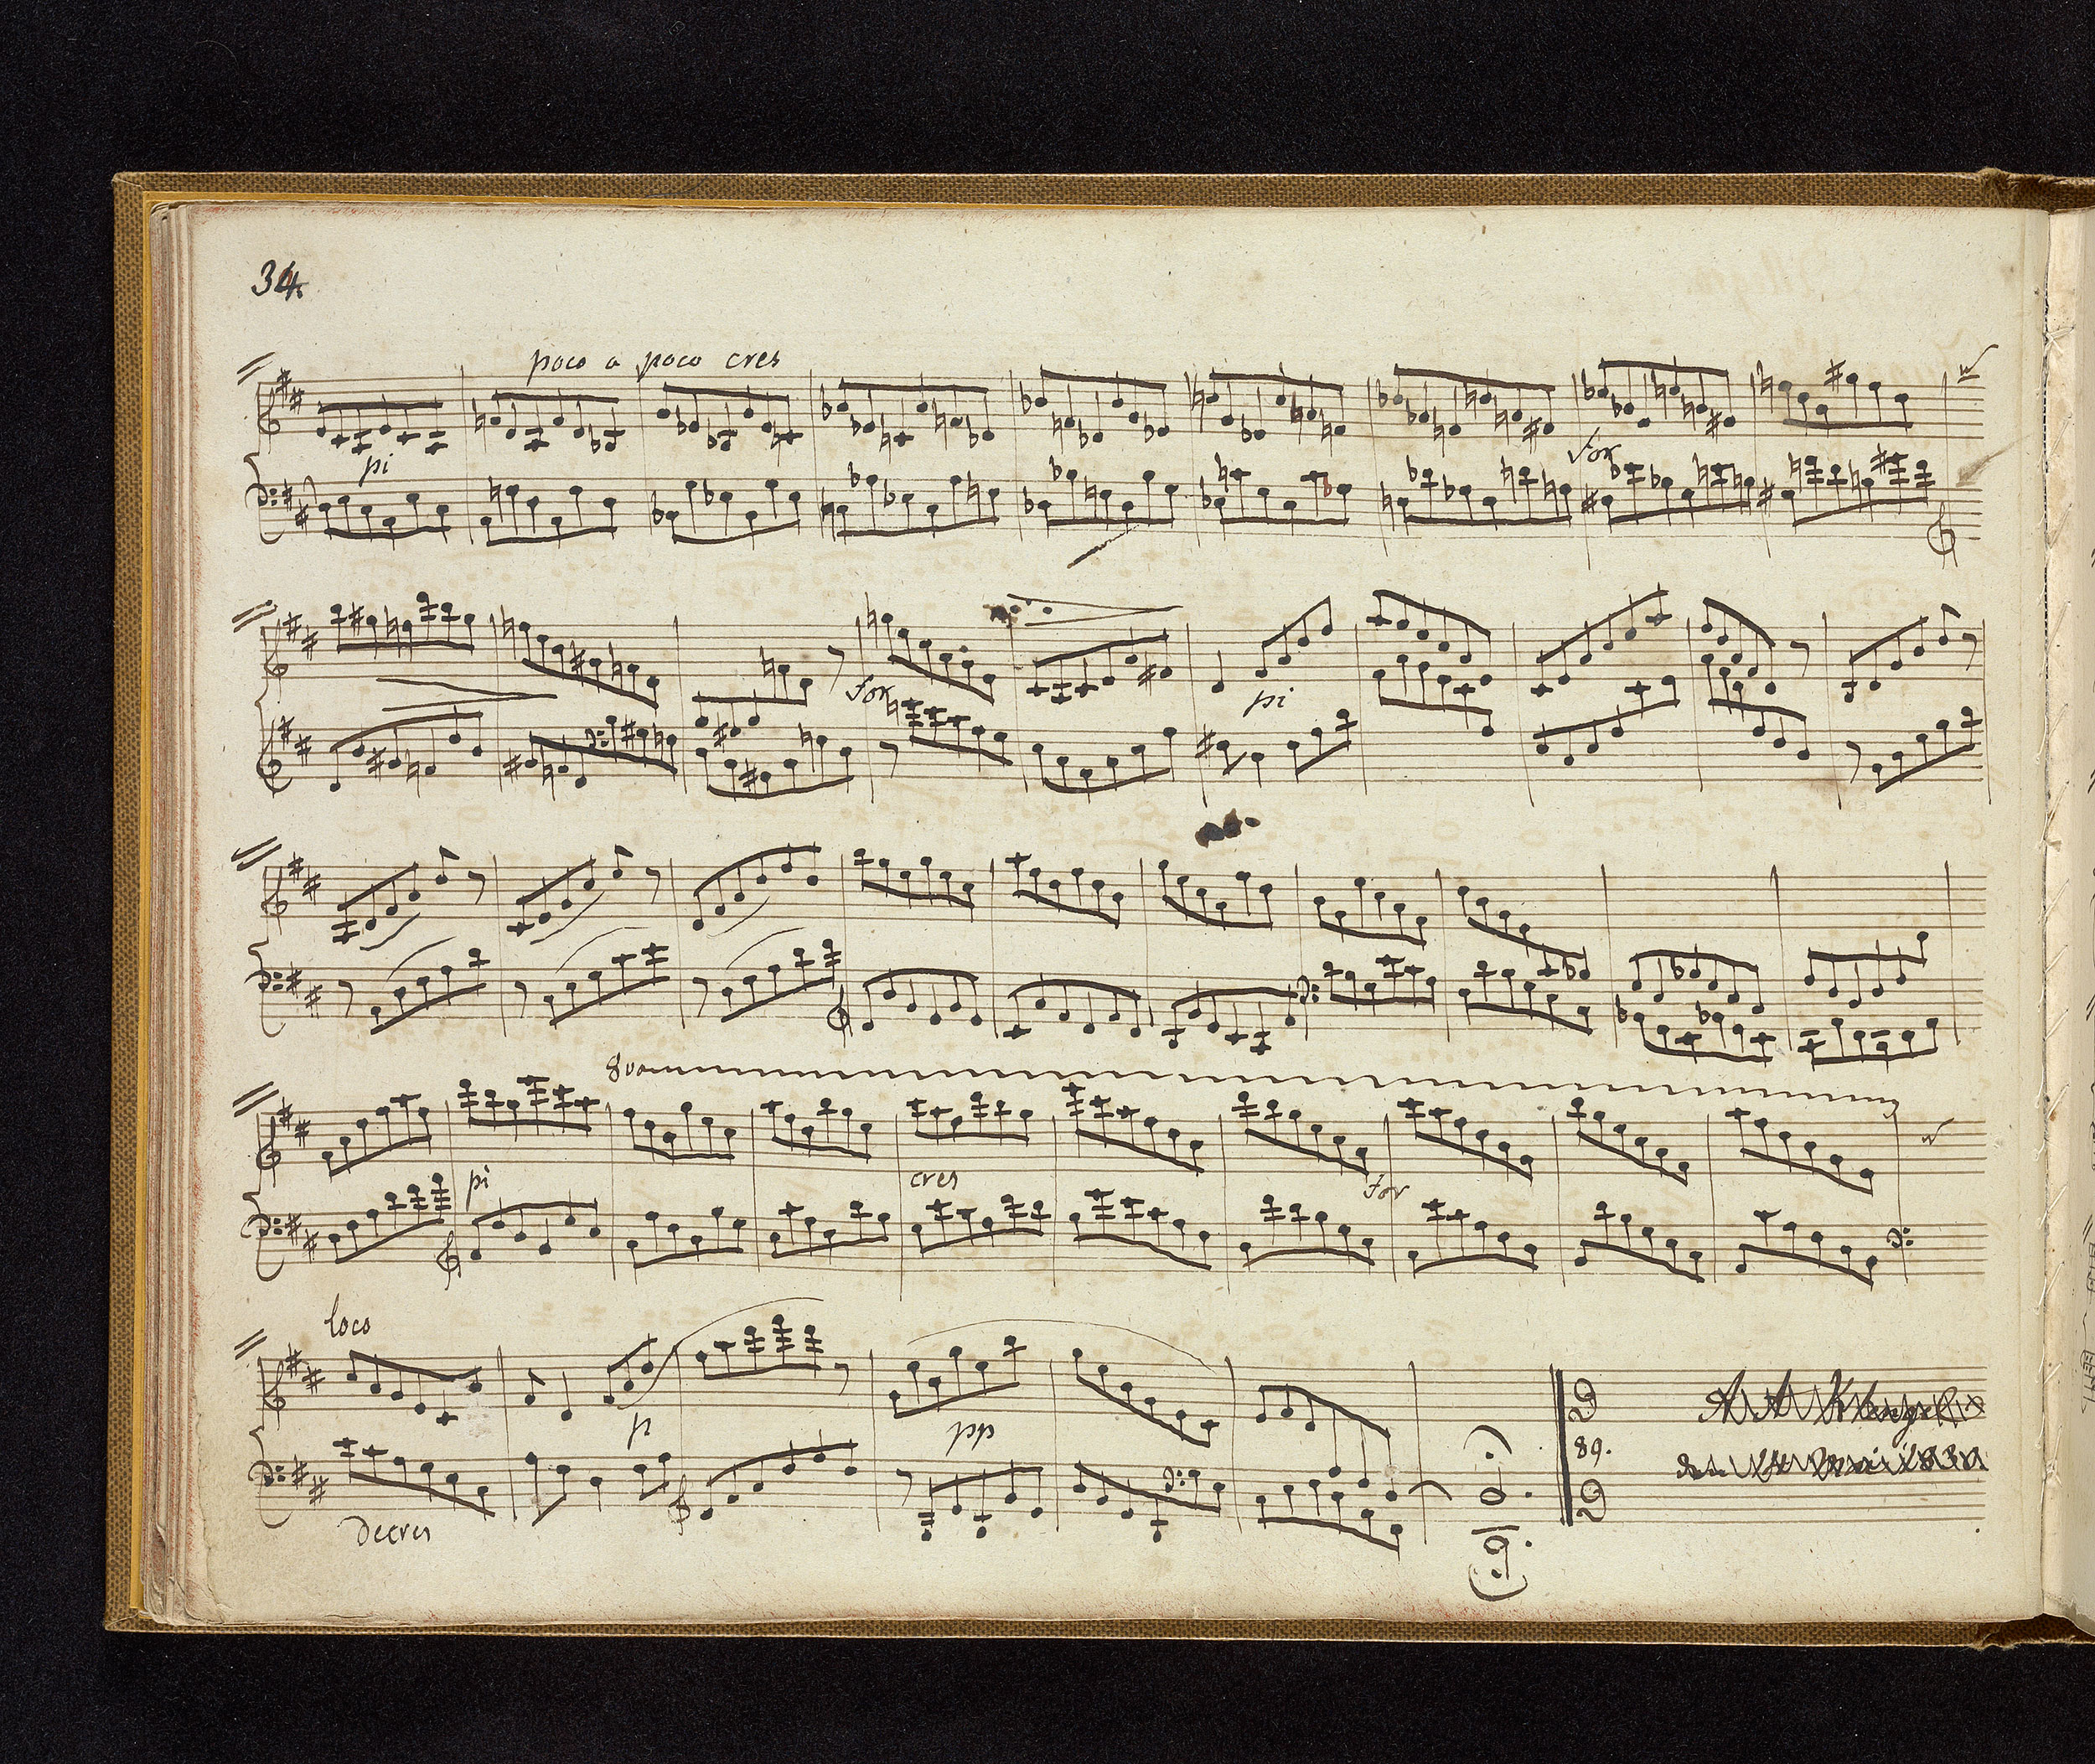 34
poco a poco cres
pi
for
for
pi
8va
pi
cres
for
loco
p
pp
decres
89.
A A Klengel